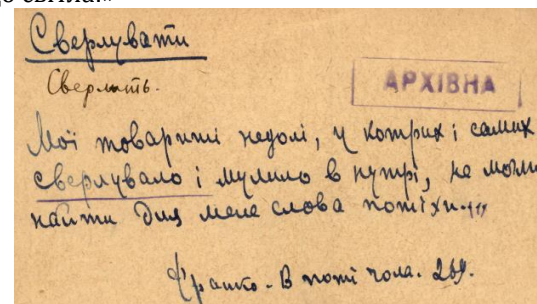 Сверлувати
Сверлить.
АРХІВНА
Мої товариші недолі, у котрих і самих
сверлувало і мулило в нутрі, не могли
найти для мене слова потіхи...
Франко. В поті чола. 269.